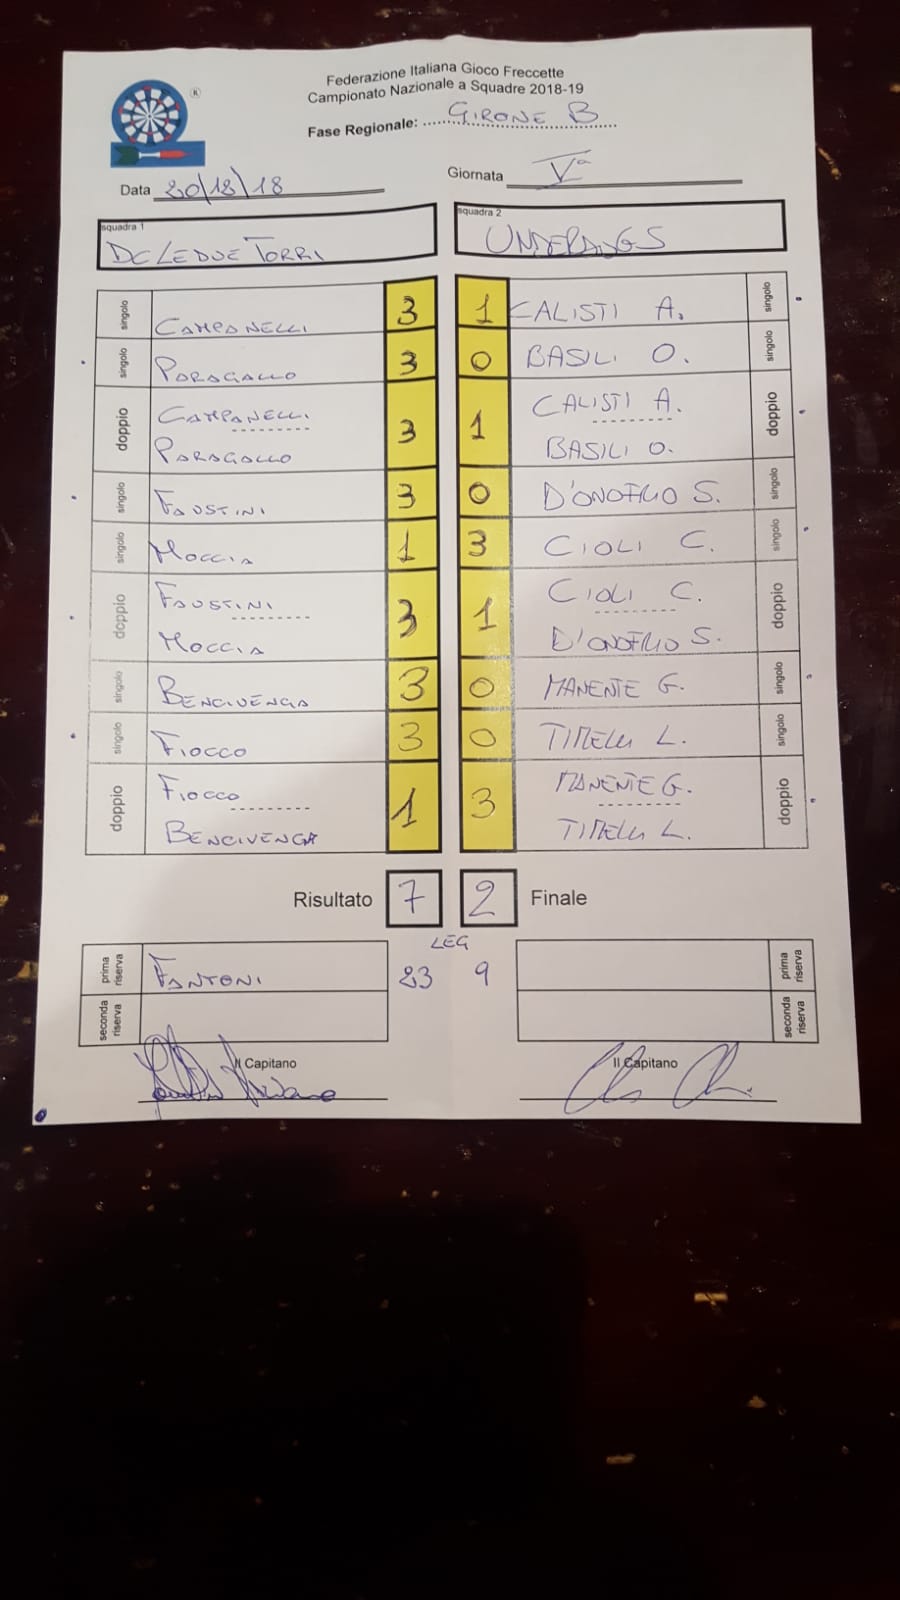 ®
Federazione Italiana Gioco Freccette
Campionato Nazionale a Squadre 2018-19
Fase Regionale: GIRONE B
Data 20/12/18
Giornata Vª
squadra 1
DC LE DUE TORRI
squadra 2
UNDERDOGS
singolo CAMPANELLI 3 1 CALISTI A. singolo
singolo PARAGALLO 3 0 BASILI O. singolo
doppio CAMPANELLI 3 1 CALISTI A. doppio
PARAGALLO BASILI O.
singolo FAUSTINI 3 0 D'ONOFRIO S. singolo
singolo MOCCIA 1 3 CIOLI C. singolo
doppio FAUSTINI 3 1 CIOLI C. doppio
MOCCIA D'ONOFRIO S.
singolo BENCIVENGA 3 0 MANENTE G. singolo
singolo FIOCCO 3 0 L. singolo
doppio FIOCCO 1 3 MANENTE G. doppio
BENCIVENGA L.
Risultato 7 2 Finale
LEG
prima riserva FANTONI 23 9 prima riserva
seconda riserva seconda riserva
Il Capitano
Il Capitano